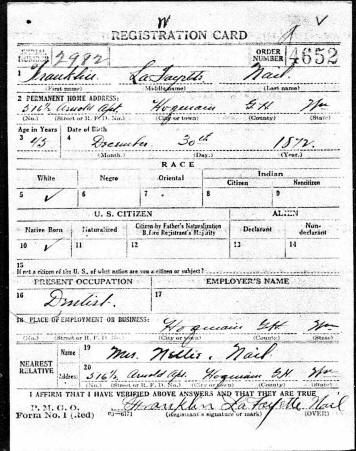 REGISTRATION CARD
SERIAL NUMBER 2982 ORDER NUMBER 4652
1 Franklin LaFayette Nail
(First name) (Middle name) (Last name)
2 PERMANENT HOME ADDRESS:
516½ Arnold Apt. Hoqmain G.H. Wn
(No.) (Street or R. F. D. No.) (City or town) (County) (State)
Age in Years Date of Birth
3 45 4 December 30th 1872.
(Month.) (Day.) (Year.)
RACE
White Negro Oriental Indian
Citizen Noncitizen
5 ✓ 6 7 8 9
U. S. CITIZEN ALIEN
Native Born Naturalized Citizen by Father's Naturalization Before Registrant's Majority Declarant Non-declarant
10 ✓ 11 12 13 14
15
If not a citizen of the U. S., of what nation are you a citizen or subject?
PRESENT OCCUPATION EMPLOYER'S NAME
16 Dentist. 17
18 PLACE OF EMPLOYMENT OR BUSINESS:
Hoqmain G.H. Wn
(No.) (Street or R. F. D. No.) (City or town) (County) (State)
NEAREST RELATIVE
Name 19 Mrs. Nellie. Nail
Address 20 516½ Arnold Apt. Hoqmain G.H. Wn
(No.) (Street or R. F. D. No.) (City or town) (County) (State)
I AFFIRM THAT I HAVE VERIFIED ABOVE ANSWERS AND THAT THEY ARE TRUE
P. M. G. O.
Form No. 1 (Red) Franklin LaFayette Nail
(Registrant's signature or mark) (OVER)